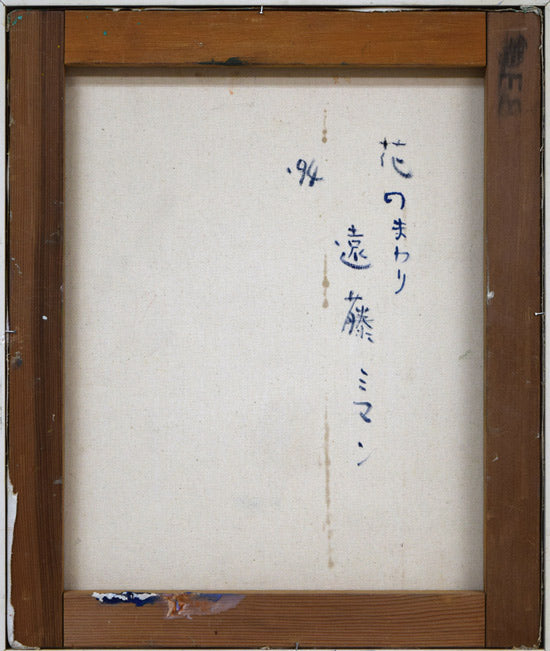 花のまわり
遠藤ミマン
'94